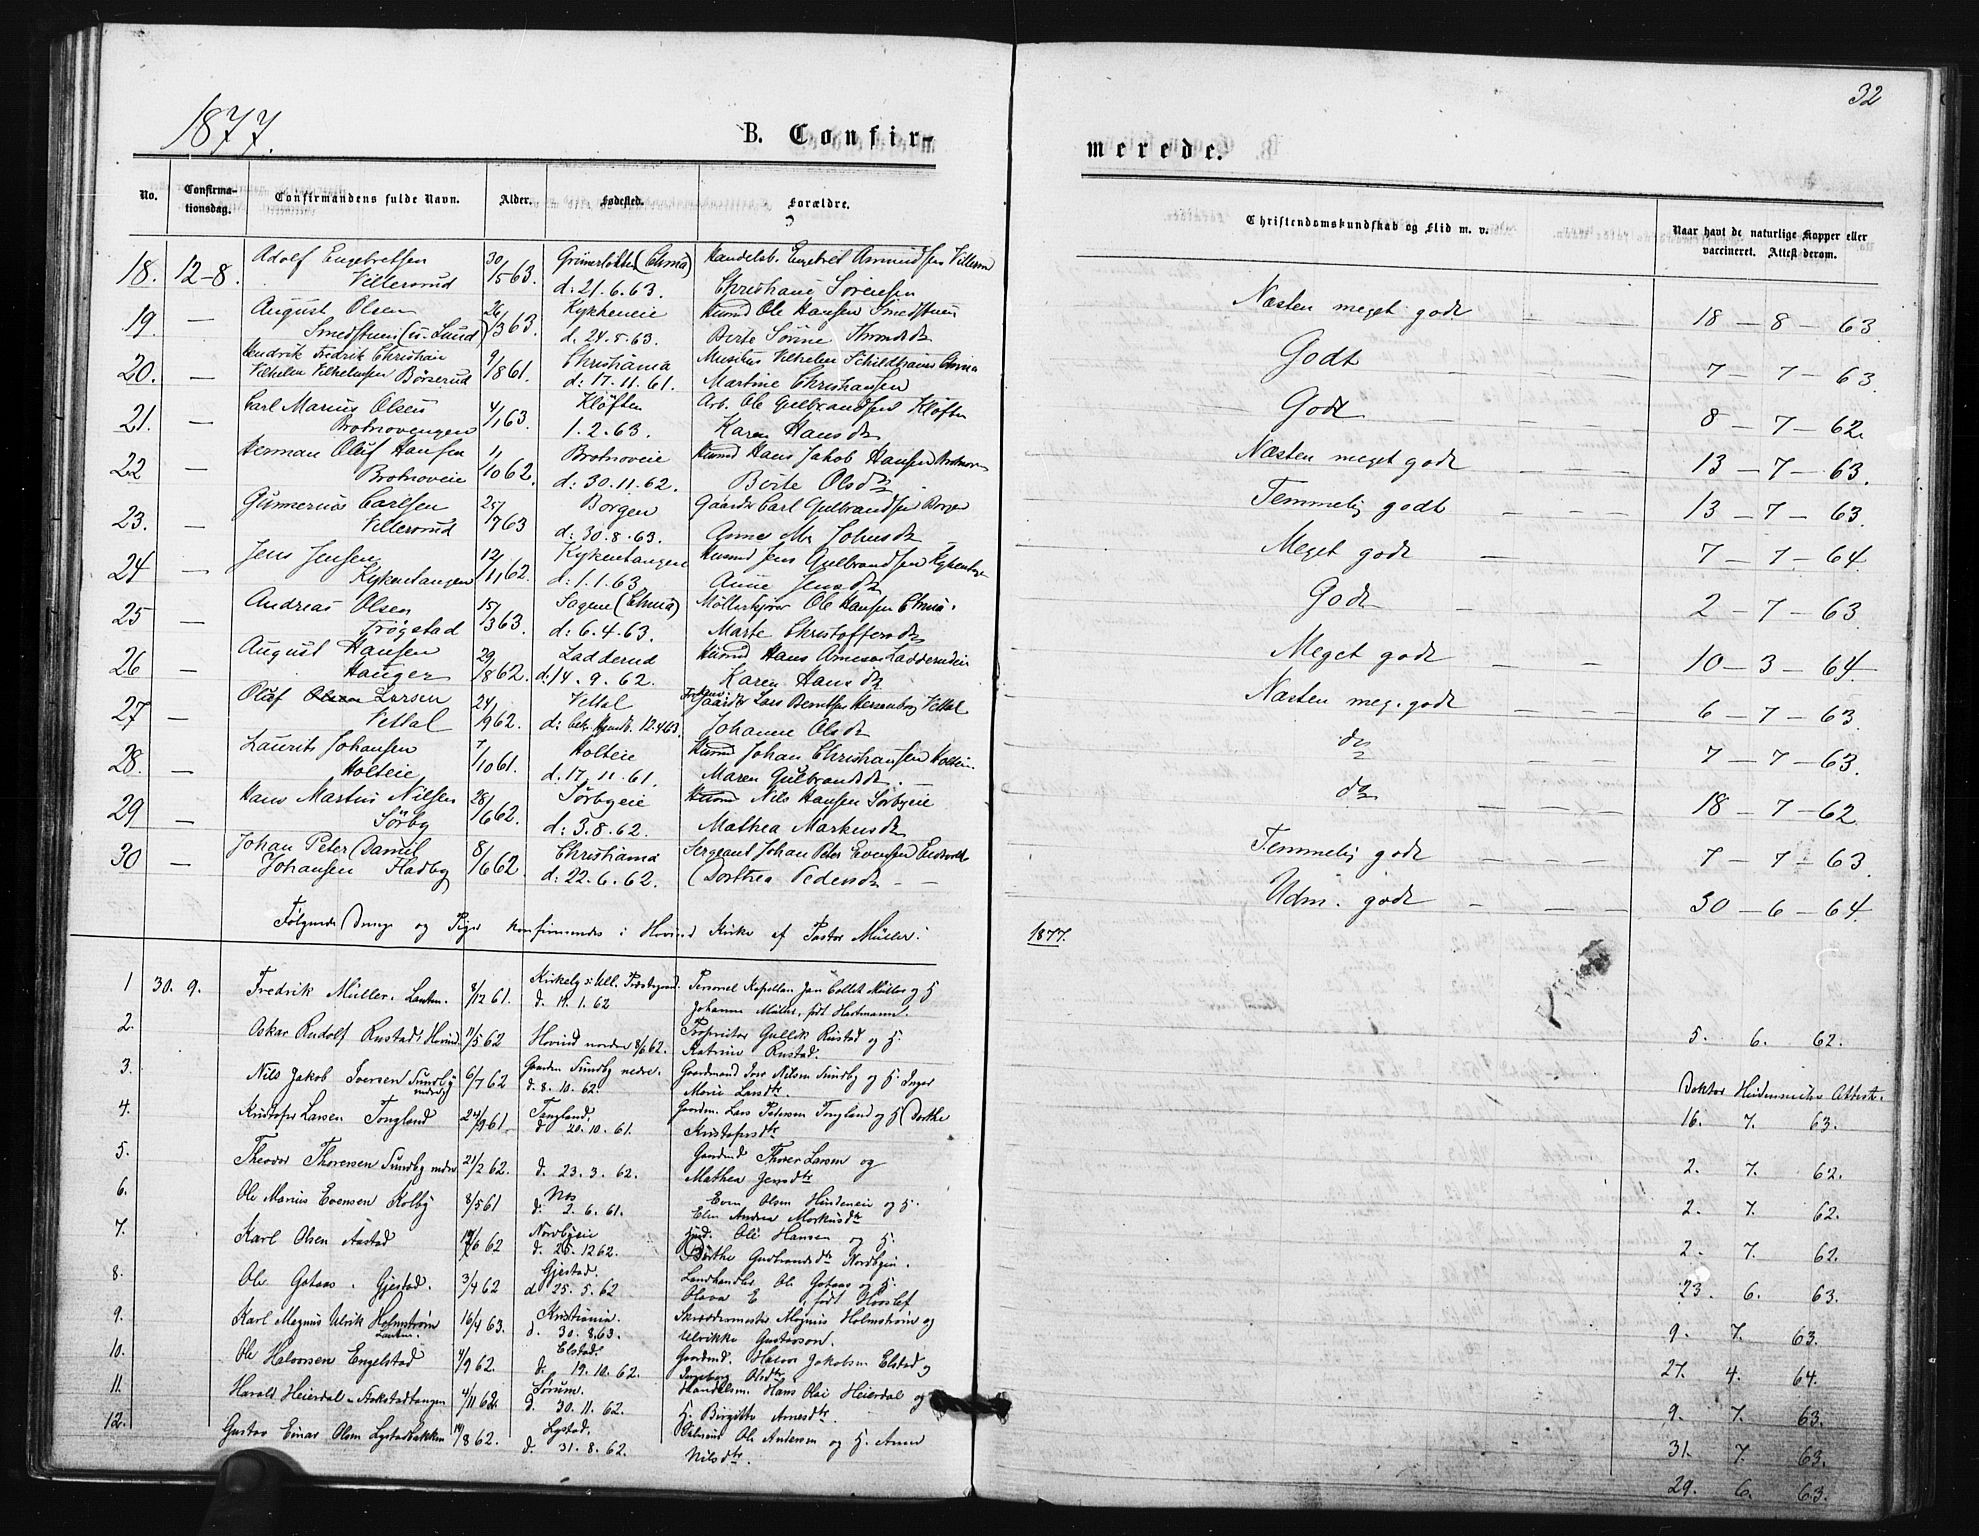 1877.
B. Confir-
No.
Confirma-
tionsdag.
Confirmandens fulde Navn.
Alder.
Fødested.
Forældre.
18. 12-8. Adolf Engebretsen 30/5 63. Grünerløkken (Chria) Handelsb. Engebret Amundsen Villerud
Villersrud d: 21.6.63. Christiane Sørensen
19 — August Olsen 26/3 63. Kykkeneie Husmd Ole Hansen Smedstuen
Smedstuen (v. Lund) d. 24.5.63. Berte Sørine
20. — Hendrik Fredrik Christian 9/8 61. Christiania Musikus Vilhelm Chria
Vilhelm Vilhelmsen Børserud d: 17.11.61. Martine Christiansen
21. — Carl Marius Olsen 4/1 63. Kløften Arb. Ole Gulbrandsen Kløften
Brotnovengen 1.2.63. Karen Hansdr
22 — Herman Oluf Hansen 1/10 62. Brotnoveie Husmd Hans Jakob Hansen Brotnov
Brotnoveie d: 30.11.62. Berte Olsdr
23. — Gunnerius Carlsen 25/7 63 Borgen Gaardbr Carl Gulbrandsen Borgen
Villersrud d: 30.8.63. Anne Johnsdr
24 — Jens Jensen 12/11 62. Kykentangen Husmd Jens Gulbrandsen
Kykentangen d: 1.1.63. Anne Jensdr
25 — Andreas Olsen 15/3 63. Sagene (Chria) Ole Hansen Chria.
Frøgstad d: 6.4.63. Marte Christoffersdr
26 — August Hansen 29/8 62. Ladderud Husmd Hans Arnesen Ladderudeie
Hauger d: 14.9.62. Karen Hansdr
27 — Oluf Olsen Larsen 24/9 62. Vettal Gaardbr Lars Berntsen Vettal
Vettal d: 12.4 63. Johanne Olsdr
28. — Laurits Johansen 7/10 61. Holteie Husmd Johan Christiansen Holteie.
Holteie d: 17.11.61. Maren Gulbrandsdr.
29 — Hans Martius Nilsen 28/6 62. Sørbyeie Husmd Nils Hansen Sørbyeie
Sørby d: 3.8.62. Mathea Markusdr
30 — Johan Peter Daniel 8/6 62. Christiania Sergeant Johan Peter Evensen
Johansen Fladby d: 22.6.62. Dorthea Pedersdr — —
Følgende Drenge og Piger konfirmeredes i Hovind Kirke af Pastor Müller:
1 30. 9. Fredrik Müller. 8/12 61. Kirkelg i Ull. Præstegaard. Personel Kapellan Jan Collet Müller og H
d. 19.1.62 Johanne Müller, født Hartmann.
2. Oskar Rudolf Rustad Hovind. 11/5 62 Hovind nordre 8/6 62. Proprietær Gullik Rustad og H.
Katrine Rustad.
3. Nils Jakob Iversen Sundby nedre 6/7 62 Gaarden Sundby nedre. Gaardmand Iver Nilsen Sundby og H. Inger
d. 8.10.62. Marie Larsdtr.
4. Kristofer Larsen Tongland 24/9 61. Tongland. Gaardm. Lars Petersen Tongland og H Dorthe
d 20.10.61. Kristofersdtr
5. Theodor Thoresen Sundby nedre 21/2 62. d. 23.3.62. Gaardmd Thorer Larsen og
Mathea Jensdtr
6. Ole Marius Evensen Kolby 8/5 61 Nos Even Olsen og H.
d. 2.6.61. Elen Andrea Markusdtr
7. Karl Olsen Aastad 19/6 62 Nordbyeie Husmd. Ole Hansen og H.
d. 26. 12 62. Berthe Gudbrandsdtr Nordbyeie.
8. Ole Gotaas. Gjestad. 3/4 62 Gjestad. Landhandler Ole Gotaas og H.
d 25.5.62 Olava E født Hovslef
9. Karl Magnus Ulrik Holmstrøm 16/4 63. Kristiania. Skræddermester Magnus Holmstrøm og
d. 30.8.63. Ulrikke Gustavson.
10. Ole Halvorsen Engelstad 4/9 62. Elstad. Gaardmd. Halvor Jakobsen Elstad og
d. 19.10.62. Ingeborg Olsdtr
11. Harald Heierdal Aakstadtangen 4/11 62. Sørum. Handelsm. Hans Olai Heierdal og
d. 30.11.62. H. Birgitte Arnesdtr.
12. Gustav Einar Olsen Lystadbakken 14/8 62. Lystad. Ole Andersen og H. Anne
d. 31.8.62. Nilsdtr.
32
merede.
Christendomskundskab og Flid m. v.
Naar havt de naturlige Kopper eller
vaccineret. Attest derom.
Næsten meget godt — — 18 — 8 — 63.
Godt — — — 7 — 7 — 63.
Godt — — — 8 — 7 — 62.
Næsten meget godt — — — 13 — 7 — 63.
Temmelig godt — — — 13 — 7 — 63.
Meget godt — — 7 — 7 — 64.
Godt — — 2 — 7 — 63.
Meget godt — — 10 — 3 — 64.
Næsten meg. godt — — 6 — 7 — 63.
do — — 7 — 7 — 63.
do — — — 18 — 7 — 62.
Temmelig godt — — — 7 — 7 — 63.
Udm. godt — — — 30 — 6 — 64.
1877.
5. 6. 62.
Doktor Attest.
16. 7. 63.
2. 7. 62.
2. 7. 62.
2. 7. 62.
23. 6. 63.
9. 7. 63.
27. 4. 64.
9. 7. 63.
31. 7. 63.
29. 6. 63.